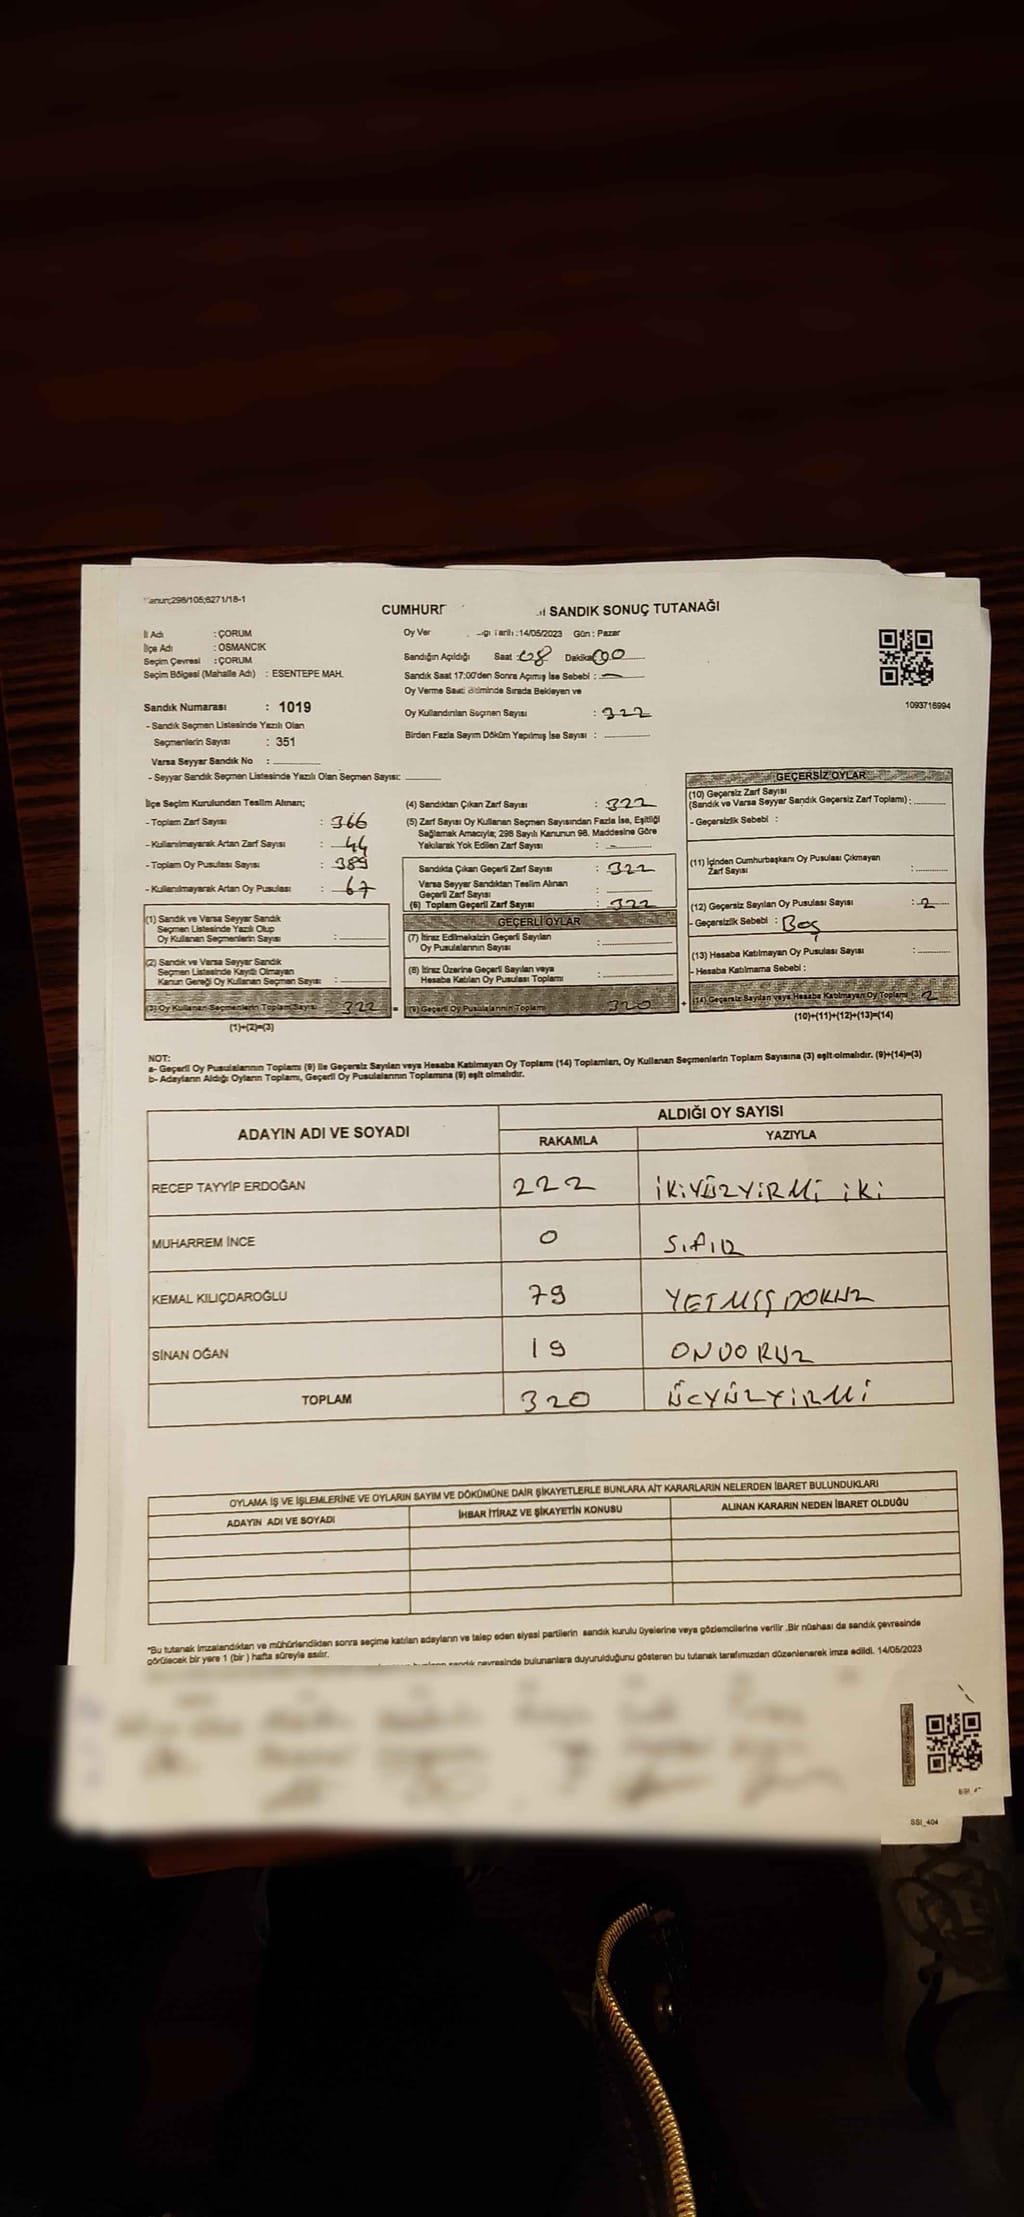 298/105;6271/18-1
SANDIK SONUÇ TUTANAĞI
İl Adı : ÇORUM
İlçe Adı : OSMANCIK
Seçim Çevresi : ÇORUM
Seçim Bölgesi (Mahalle Adı) : ESENTEPE MAH.
Oy Ver Tarihi :14/05/2023 Gün : Pazar
Sandığın Açıldığı Saat : 08 Dakika 00
Sandık Saat 17:00'den Sonra Açımış İse Sebebi : —
Oy Verme Saati Bitiminde Sırada Bekleyen ve
Oy Kullandırılan Seçmen Sayısı : 322
Birden Fazla Sayım Döküm Yapılmış İse Sayısı :
1093716994
Sandık Numarası : 1019
- Sandık Seçmen Listesinde Yazılı Olan
Seçmenlerin Sayısı : 351
Varsa Seyyar Sandık No :
- Seyyar Sandık Seçmen Listesinde Yazılı Olan Seçmen Sayısı:
İlçe Seçim Kurulundan Teslim Alınan;
- Toplam Zarf Sayısı : 366
- Kullanılmayarak Artan Zarf Sayısı : 44
- Toplam Oy Pusulası Sayısı : 389
- Kullanılmayarak Artan Oy Pusulası : 67
(1) Sandık ve Varsa Seyyar Sandık
Seçmen Listesinde Yazılı Olup
Oy Kullanan Seçmenlerin Sayısı :
(2) Sandık ve Varsa Seyyar Sandık
Seçmen Listesinde Kayıtlı Olmayan
Kanun Gereği Oy Kullanan Seçmen Sayısı :
(3) Oy Kullanan Seçmenlerin Toplam Sayısı 322
(1)+(2)=(3)
(4) Sandıktan Çıkan Zarf Sayısı : 322
(5) Zarf Sayısı Oy Kullanan Seçmen Sayısından Fazla İse, Eşitliği
Sağlamak Amacıyla; 298 Sayılı Kanunun 98. Maddesine Göre
Yakılarak Yok Edilen Zarf Sayısı : -
Sandıkta Çıkan Geçerli Zarf Sayısı : 322
Varsa Seyyar Sandıktan Teslim Alınan
Geçerli Zarf Sayısı :
(6) Toplam Geçerli Zarf Sayısı : 322
GEÇERLİ OYLAR
(7) İtiraz Edilmeksizin Geçerli Sayılan
Oy Pusulalarının Sayısı :
(8) İtiraz Üzerine Geçerli Sayılan veya
Hesaba Katılan Oy Pusulası Toplamı :
= (9) Geçerli Oy Pusulalarının Toplamı 320
GEÇERSİZ OYLAR
(10) Geçersiz Zarf Sayısı
(Sandık ve Varsa Seyyar Sandık Geçersiz Zarf Toplamı) :
- Geçersizlik Sebebi :
(11) İçinden Cumhurbaşkanı Oy Pusulası Çıkmayan
Zarf Sayısı :
(12) Geçersiz Sayılan Oy Pusulası Sayısı : 2
- Geçersizlik Sebebi : Boş
(13) Hesaba Katılmayan Oy Pusulası Sayısı :
- Hesaba Katılmama Sebebi :
+ (14) Geçersiz Sayılan veya Hesaba Katılmayan Oy Toplamı : 2
(10)+(11)+(12)+(13)=(14)
NOT:
a- Geçerli Oy Pusulalarının Toplamı (9) ile Geçersiz Sayılan veya Hesaba Katılmayan Oy Toplamı (14) Toplamları, Oy Kullanan Seçmenlerin Toplam Sayısına (3) eşit olmalıdır. (9)+(14)=(3)
b- Adayların Aldığı Oyların Toplamı, Geçerli Oy Pusulalarının Toplamına (9) eşit olmalıdır.
ADAYIN ADI VE SOYADI
ALDIĞI OY SAYISI
RAKAMLA YAZIYLA
RECEP TAYYİP ERDOĞAN 222 İKİYÜZYİRMİ İKİ
MUHARREM İNCE 0 SIFIR
KEMAL KILIÇDAROĞLU 79 YETMİŞDOKUZ
SİNAN OĞAN 19 ONDOKUZ
TOPLAM 320 ÜÇYÜZYİRMİ
OYLAMA İŞ VE İŞLEMLERİNE VE OYLARIN SAYIM VE DÖKÜMÜNE DAİR ŞİKAYETLERLE BUNLARA AİT KARARLARIN NELERDEN İBARET BULUNDUKLARI
ADAYIN ADI VE SOYADI İHBAR İTİRAZ VE ŞİKAYETİN KONUSU ALINAN KARARIN NEDEN İBARET OLDUĞU
"Bu tutanak imzalandıktan ve mühürlendikten sonra seçime katılan adayların ve talep eden siyasi partilerin sandık kurulu üyelerine veya gözlemcilerine verilir .Bir nüshası da sandık çevresinde
görülecek bir yere 1 (bir ) hafta süreyle asılır.
sandık çevresinde bulunanlara duyurulduğunu gösteren bu tutanak tarafımızdan düzenlenerek imza edildi. 14/05/2023
SSI_404